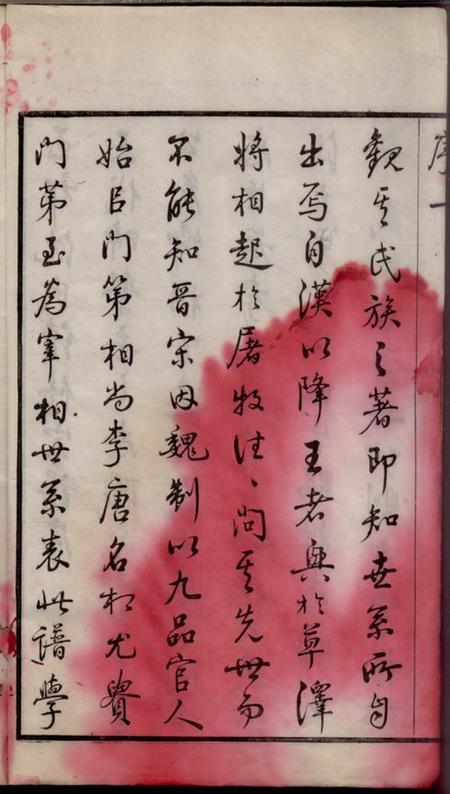 序一
觀其氏族之著即知世系所自
出焉自漢以降王者興於草澤
將相起於屠牧往〻問其先世而
不能知晉宋因魏制以九品官人
始以門第相尚李唐名相尤貴
門第至為宰相世系表此譜學